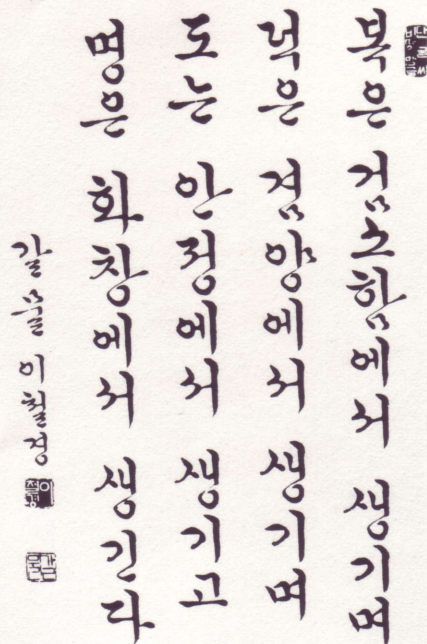 복은 검소함에서 생기며
덕은 겸양에서 생기며
도는 안정에서 생기고
명은 화창에서 생긴다
갈물 이철경
이철경
갈물